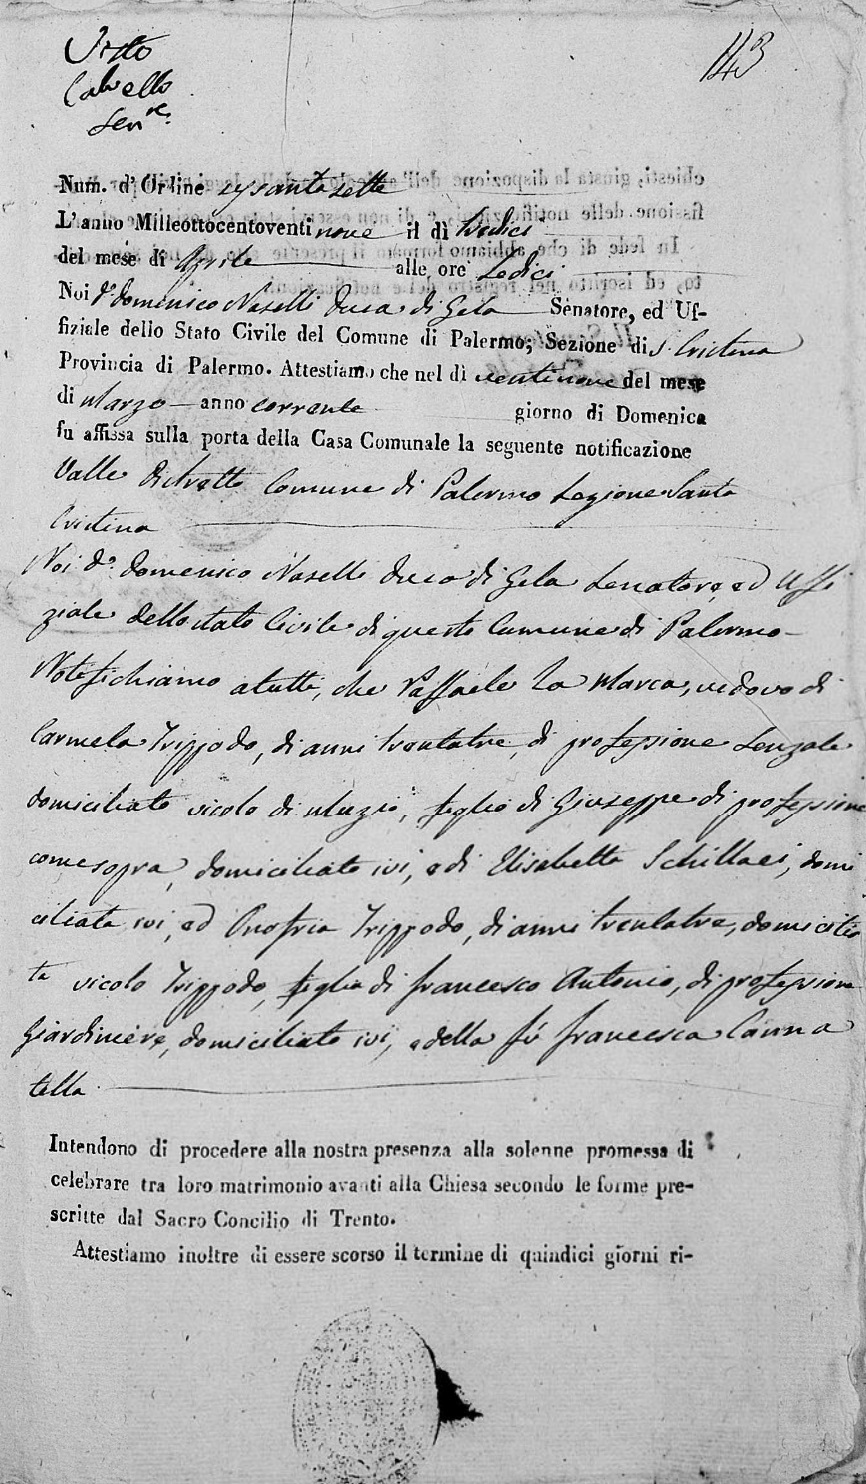 Visto
Calvello
Sen.re
143
Num. d'Ordine sessantasette
L'anno Milleottocentoventi nove il dì tredici
del mese di Aprile alle ore sedici
Noi D.n Domenico Naselli Duca di Gela Senatore, ed Uf-
fiziale dello Stato Civile del Comune di Palermo; Sezione di S. Cristina
Provincia di Palermo. Attestiamo che nel dì ventinove del mese
di Marzo anno corrente giorno di Domenica
fu affissa sulla porta della Casa Comunale la seguente notificazione
Valle Distretto Comune di Palermo Sezione Santa
Cristina
Noi D.n Domenico Naselli Duca di Gela Senatore, ed Uffi
ziale dello stato Civile di questo Comune di Palermo
Notifichiamo a tutti, che Raffaele La Marca, vedovo di
Carmela Trippodo, di anni trentatre, di professione Senzale
domiciliato vicolo di Muzio, figlio di Giuseppe di professione
come sopra, domiciliato ivi, e di Elisabetta Schillaci, domi
ciliata ivi, ed Onofria Trippodo, di anni trentatre, domicilia
ta vicolo Trippodo, figlia di Francesco Antonio, di professione
Giardiniere, domiciliato ivi, e della fù Francesca Canna
tella
Intendono di procedere alla nostra presenza alla solenne promessa di
celebrare tra loro matrimonio avanti alla Chiesa secondo le forme pre-
scritte dal Sacro Concilio di Trento.
Attestiamo inoltre di essere scorso il termine di quindici giorni ri-